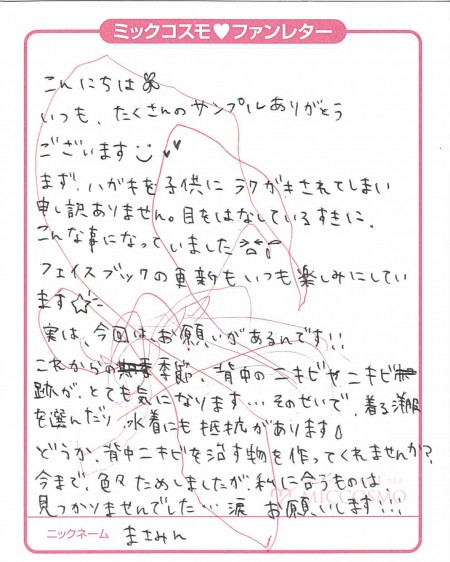 ミックコスモ♥ファンレター
こんにちは
いつも、たくさんのサンプルありがとう
ございます
まず、ハガキを子供にラクガキされてしまい
申し訳ありません。目をはなしているすきに、
こんな事になっていました
フェイスブックの更新もいつも楽しみにしてい
ます☆
実は、今回は、お願いがあるんです!!
これからの季節、背中のニキビやニキビ
跡が、とても気になります…そのせいで、着る洋服
を選んだり、水着にも抵抗があります
どうか、背中ニキビを治す物を作ってくれませんか?
今まで、色々ためしましたが、私に合うものは
見つかりませんでした…涙 お願いします!!!
MICCOSMO
ニックネーム まさみん